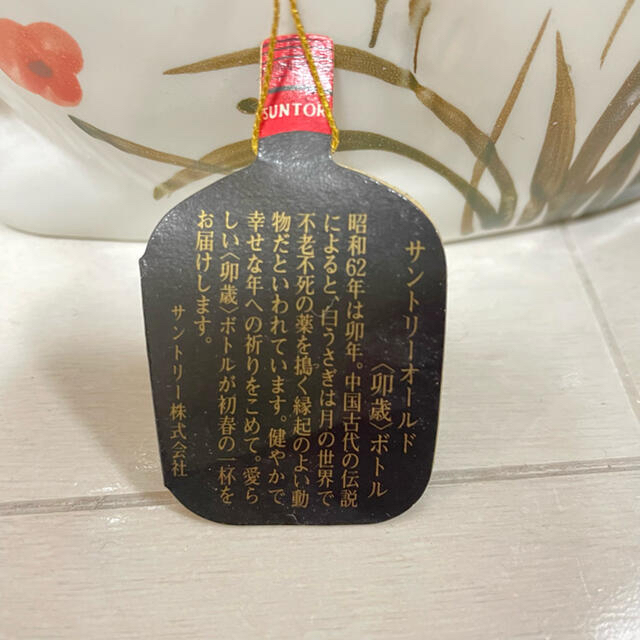 SUNTOR
サントリーオールド
〈卯歳〉ボトル
昭和62年は卯年。中国古代の伝説
によると、白うさぎは月の世界で
不老不死の薬を搗く縁起のよい動
物だといわれています。健やかで
幸せな年への祈りをこめて。愛ら
しい〈卯歳〉ボトルが初春の一杯を
お届けします。
サントリー株式会社